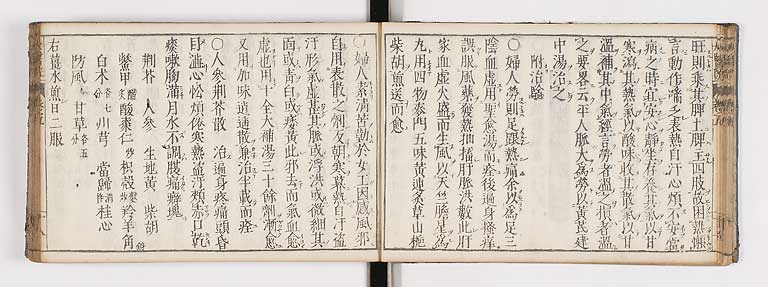 旺則乘其脾土脾主四肢故困熱懶
言動作喘乏表熱自汗心煩不安當
病之時宜安心靜坐存養其氣以甘
寒瀉其熱氣以酸味收其散氣以甘
溫補其中氣經言勞者溫之損者溫
之要畧云平人脈大為勞以黃芪建
中湯治之
附治驗
○婦人勞則足跟熱痛余以為足三
陰血虛用聖愈湯而痊後遍身搔痒
誤服風藥發熱抽搐肝脈洪數此肝
家血虛火盛而生風以天竺膽星為
丸用四物麥門五味黃連炙草山梔
柴胡煎送而愈
○婦人素清苦勤於女工因感風邪
自用表散之劑反朝寒暮熱自汗盜
汗形氣虛甚其脈或浮洪或微細其
面或青白或痿黃此邪去而氣血愈
虛也用十全大補湯三十餘劑漸愈
又用加味逍遙散兼治半載而痊
○人參荊芥散 治遍身疼痛頭昏
目澁心忪煩倦寒熱盜汗頰赤口乾
痰嗽胸滿月水不調臍痛痞塊
荊芥 人參 生地黃 柴胡
鱉甲醋 酸棗仁炒 枳殼 羚羊角
白朮各七分 川芎 當歸 桂心
防風 甘草各五分
右薑水煎日二服